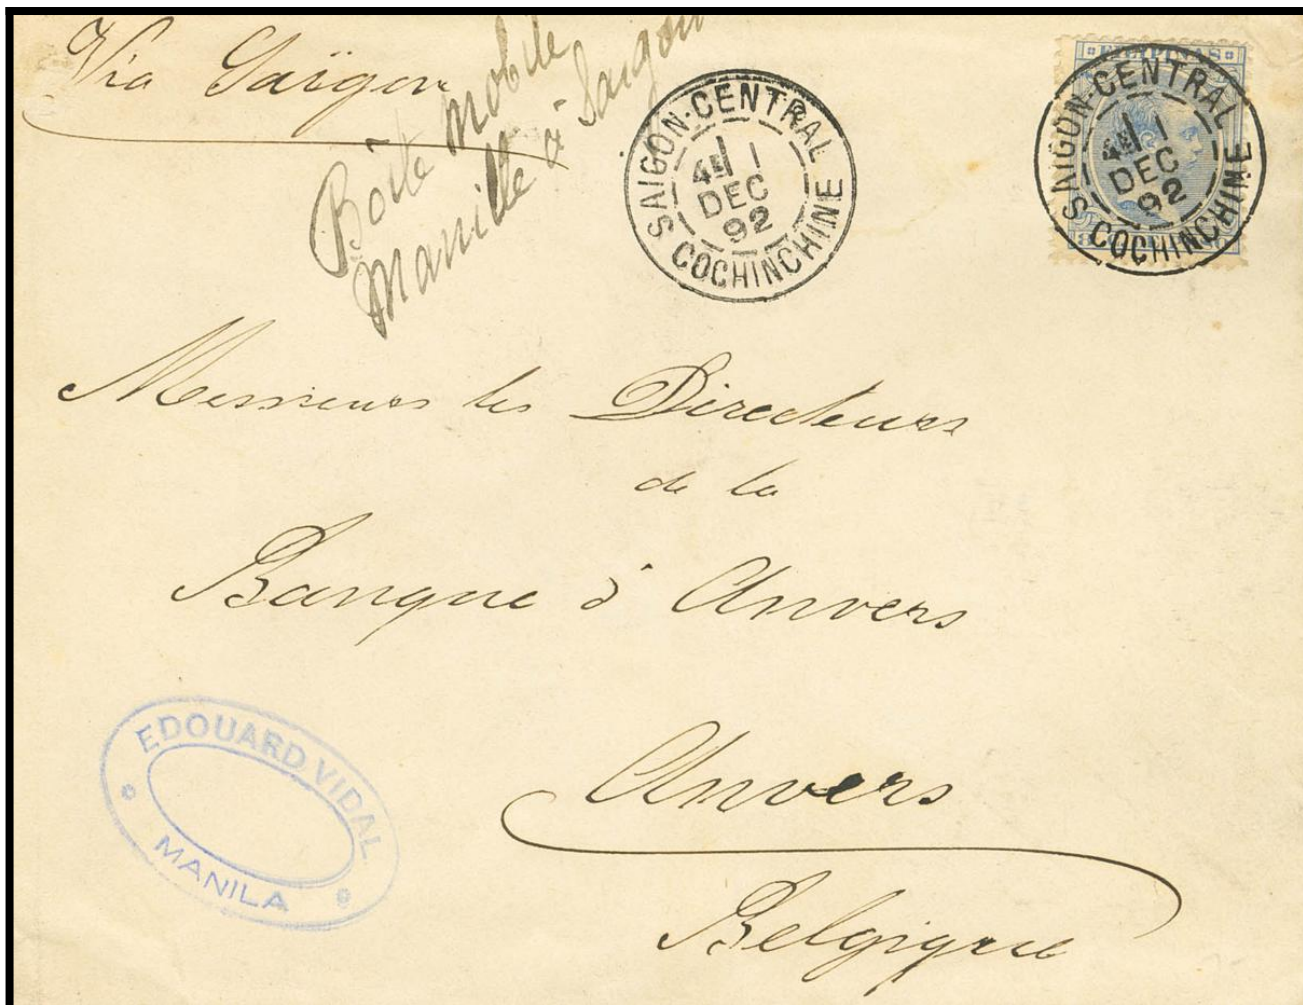 Via Saïgon
Boite mobile
Manille à Saigon
SAIGON-CENTRAL
1
DEC
92
COCHINCHINE
FILIPINAS
SAIGON-CENTRAL
1
DEC
92
COCHINCHINE
Messieurs les Directeurs
de la
Banque d'Anvers
Anvers
Belgique
EDOUARD VIDAL
MANILA